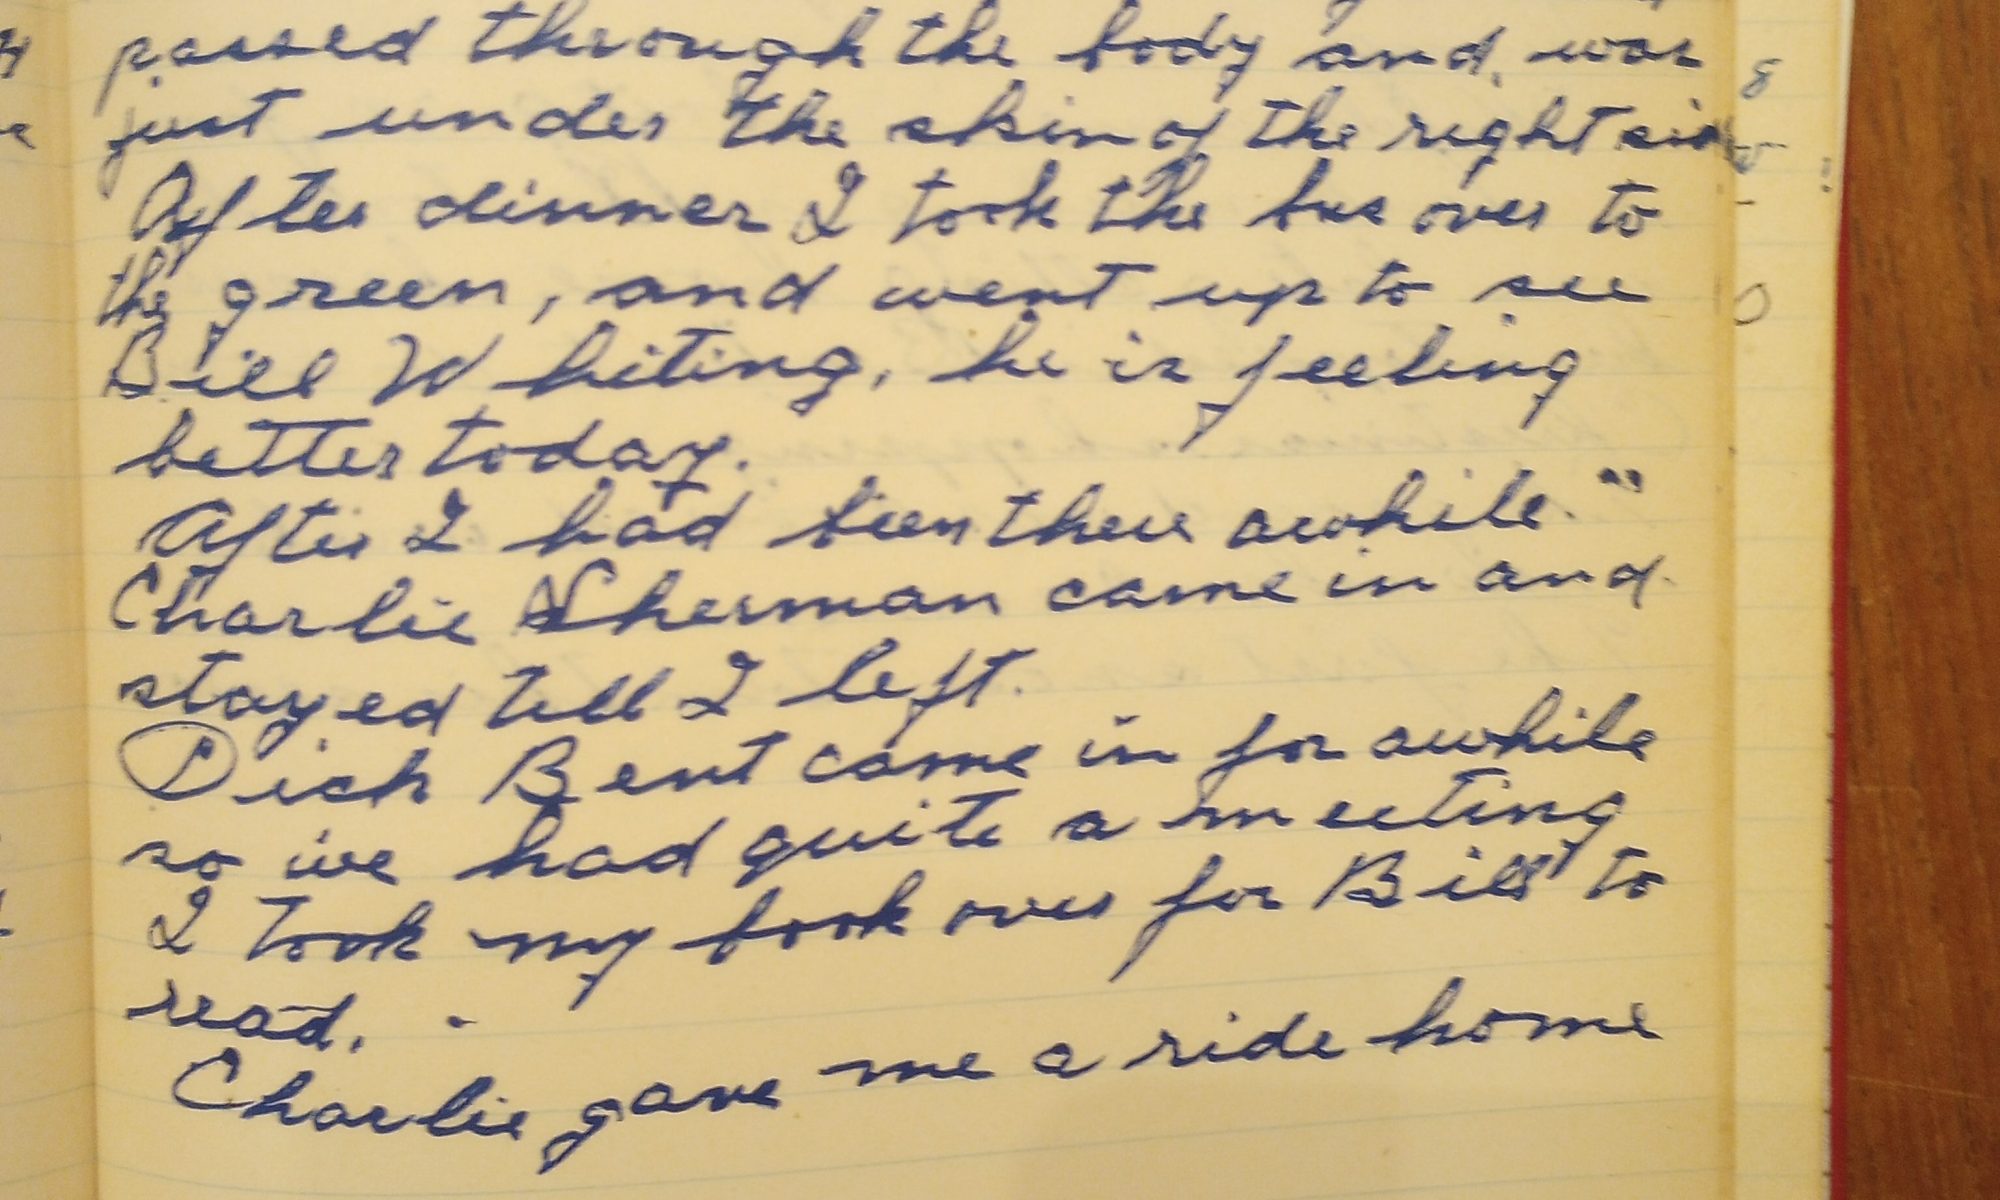 passed through the body and, was
just under the skin of the right side
After dinner I took the bus over to
the green, and went up to see
Bill Whiting, he is feeling
better today.
After I had been there awhile."
Charlie Sherman came in and
stayed till I left.
Dick Bent came in for awhile
so we had quite a meeting
I took my book over for Bill to
read.
Charlie gave me a ride home